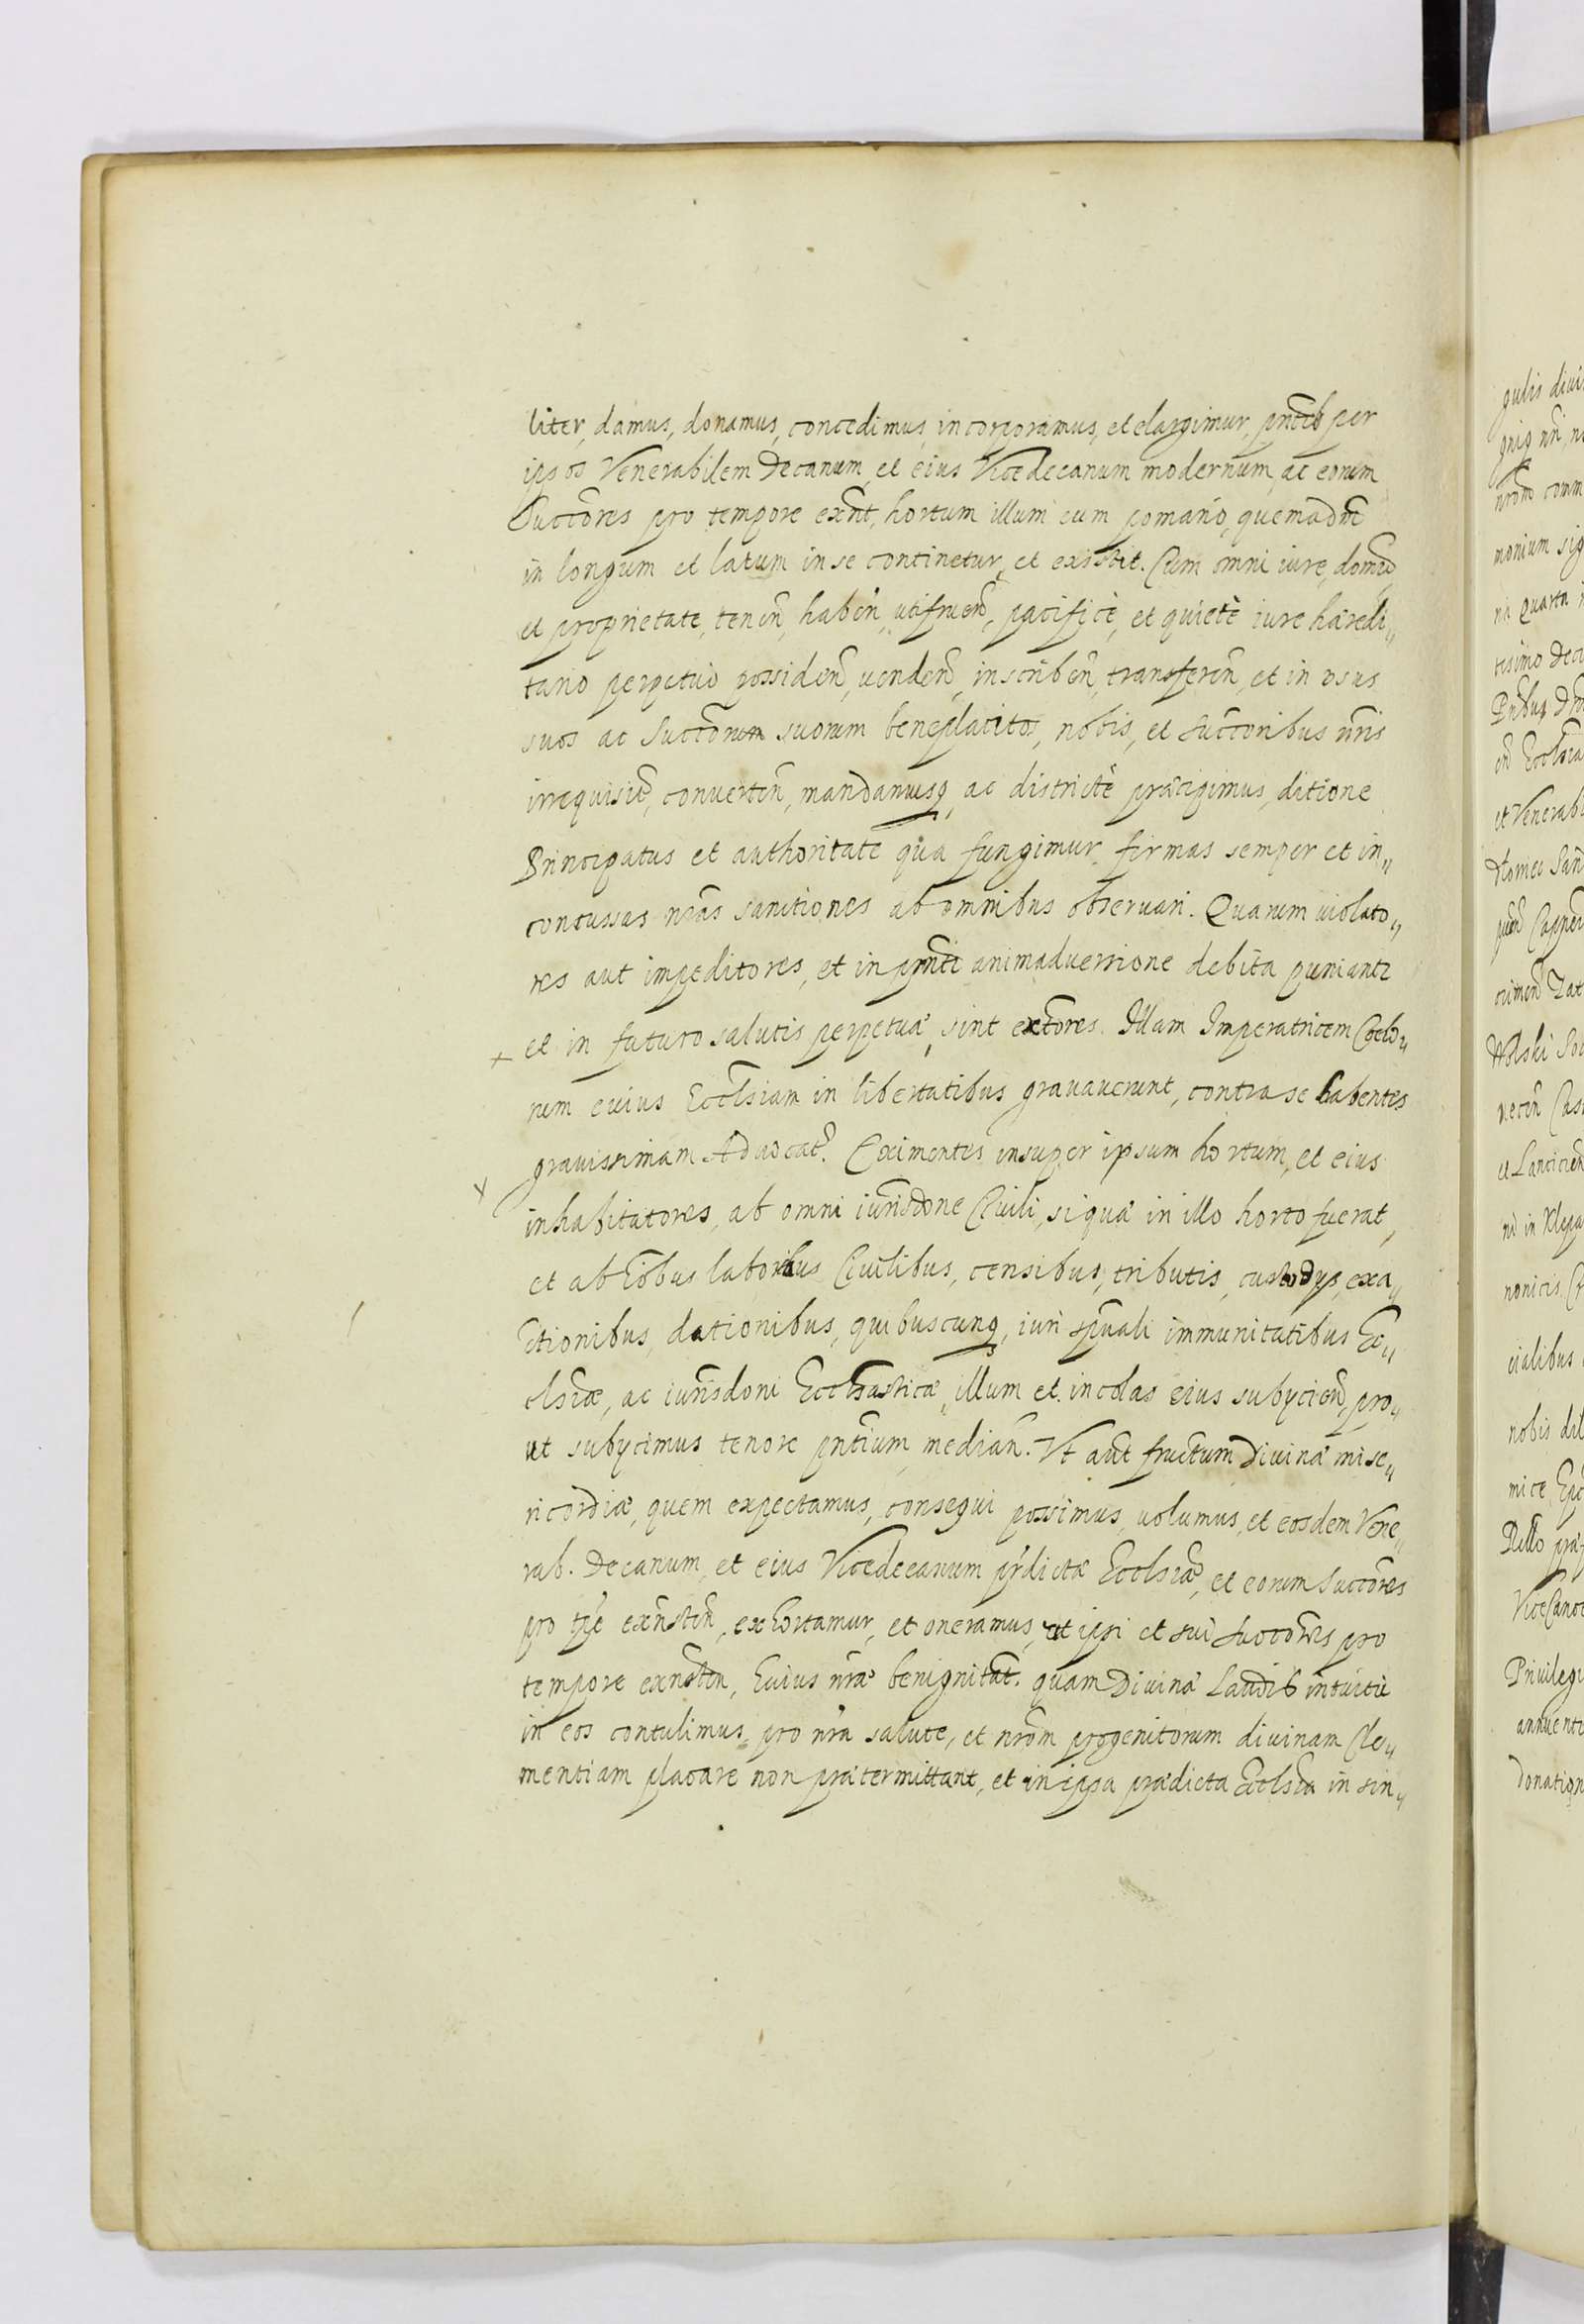 liter, damus, donamus, concedimus, incorporamus, et elargimur, pñtib per
ipsos Venerabilem Decanum, et eius Vicedecanum modernum, ac eorum
Succõres pro tempore exñt, hortum illum cum pomario, quemadm̃
in longum et latum in se continetur, et existit. Cum omni iure, domio,
et proprietate, tenen̄, haben̄, utifruen̄, pacificè, et quietè iure hæredi„
tario perpetuò possiden̄, venden̄, inscriben̄, transferen̄, et in vsus
suos ac Succõrum suorum beneplacitos, nobis, et Succõribus nr̃is
irrequisit̃, conuerten̄, mandamusq, ac districtè præcipimus, ditione
Principatus et authoritate qua fungimur firmas semper et in„
concussas nr̃as sanctiones ab omnibus obseruari. Quarum uiolato„
res aut impeditores, et in pñti animaduersione debita puniantr
et in futuro salutis perpetuæ, sint extores. Illam Imperatricem Cœlo„
rum cuius Eccl̃siam in libertatibus grauauerunt, contra se habentes
grauissimam Aduocat̃. Eximentes insuper ipsum hortum, et eius
inhabitatores, ab omni iurisd̃one Ciuili, si quæ in illo horto fuerat,
et ab õibus laboribus Ciuilibus, censibus, tributis, custodijs, exa„
ctionibus, dationibus, quibuscunq, iuri sp̃uali immunitatibus Ec„
cl̃siæ, ac iurisd̃oni Eccl̃siasticæ, illum et incolas eius subijcien̄, pro„
ut subijcimus tenore pñtium median̄. Vt aũt fructum Diuinæ mise„
ricordiæ, quem expectamus, consequi possimus, uolumus, et eosdem Vene„
rab. Decanum, et eius Vicedecanum p̃dictæ Eccl̃siæ, et eorum Succõres
pro tp̃e exñsten̄, exhortamur, et oneramus, ut ipsi et sui Succõres pro
tempore exñsten̄, huius nr̃æ benignitat. quam Diuinæ Laudis intuitu
in eos contulimus, pro nr̃a salute, et nr̃om progenitorum diuinam Cle„
mentiam placare non prætermittant, et in ipsa prædicta Eccl̃sia in sin„